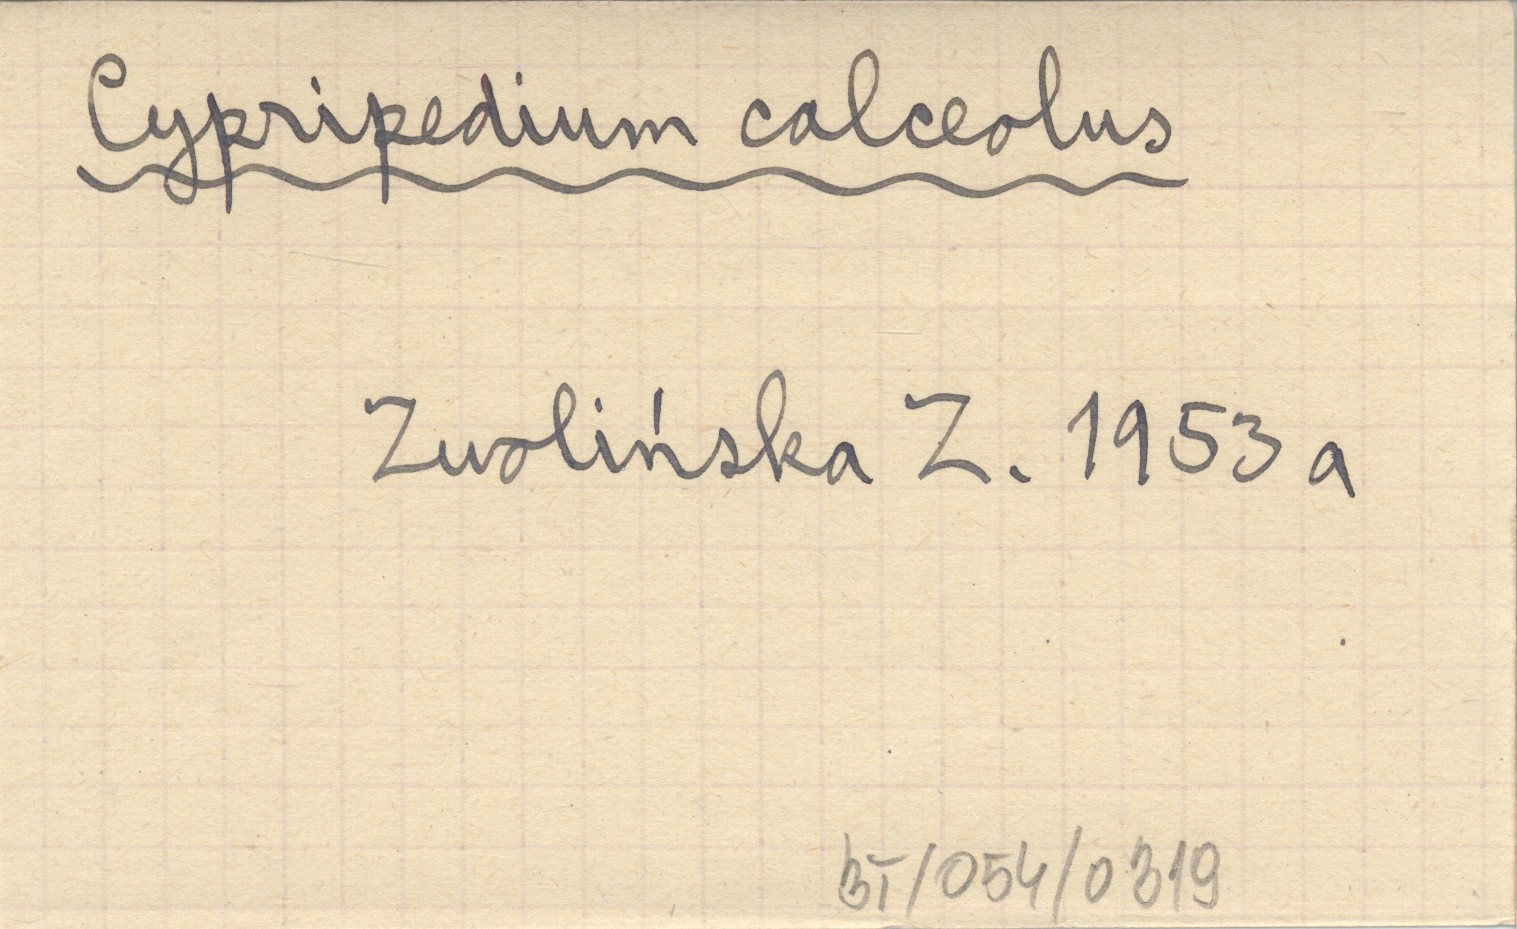 Cypripedium calceolus
Zwolińska Z. 1953 a
BT/054/0319